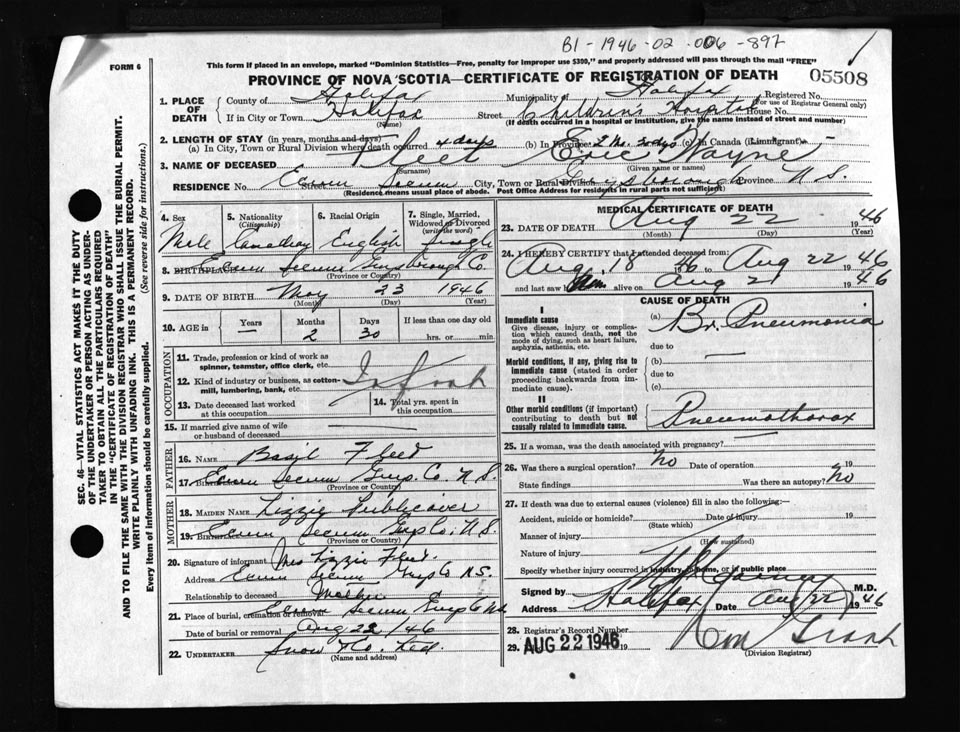 B1-1946-02-006-897
FORM 6
This form if placed in an envelope, marked "Dominion Statistics—Free, penalty for improper use $300," and properly addressed will pass through the mail "FREE"
PROVINCE OF NOVA SCOTIA—CERTIFICATE OF REGISTRATION OF DEATH
05508
1. PLACE OF DEATH
County of Halifax Municipality of Halifax Registered No.
(For use of Registrar General only)
If in City or Town Halifax Street Children's Hospital House No.
(Name) (If death occurred in a hospital or institution, give the name instead of street and number)
2. LENGTH OF STAY (in years, months and days)
(a) In City, Town or Rural Division where death occurred 4 days (b) In Province 2 Mo. 30 dys (c) In Canada (if immigrant)
3. NAME OF DECEASED Fleet Eric Wayne
(Surname) (Given name or names)
RESIDENCE No. Ecum Secum City, Town or Rural Division Guysborough Province N.S.
Street
(Residence means usual place of abode. Post Office Address for residents in rural parts not sufficient)
4. Sex
5. Nationality
(Citizenship)
6. Racial Origin
7. Single, Married, Widowed or Divorced
(write the word)
Male Canadian English Single
8. BIRTHPLACE Ecum Secum Guysborough Co.
(Province or Country)
9. DATE OF BIRTH May 23 1946
(Month) (Day) (Year)
10. AGE in Years Months Days If less than one day old
— 2 30 hrs. or min.
OCCUPATION
11. Trade, profession or kind of work as spinner, teamster, office clerk, etc.
12. Kind of industry or business, as cotton-mill, lumbering, bank, etc.
Infant
13. Date deceased last worked at this occupation
14. Total yrs. spent in this occupation
15. If married give name of wife or husband of deceased —
FATHER
16. NAME Basil Fleet
17. BIRTHPLACE Ecum Secum Guys. Co. N.S.
(Province or Country)
MOTHER
18. MAIDEN NAME Lizzie Publicover
19. BIRTHPLACE Ecum Secum Guys Co. N.S.
(Province or Country)
20. Signature of informant Mrs Lizzie Fleet.
Address Ecum Secum Guys Co N.S.
Relationship to deceased Mother
21. Place of burial, cremation or removal Ecum Secum Guys Co NS
Date of burial or removal Aug 22/46
22. UNDERTAKER Snow & Co. Ltd.
(Name and address)
MEDICAL CERTIFICATE OF DEATH
23. DATE OF DEATH Aug 22 1946
(Month) (Day) (Year)
24. I HEREBY CERTIFY that I attended deceased from:
Aug 18 46 to Aug 22 1946
and last saw him alive on Aug 21 1946
CAUSE OF DEATH
I
Immediate cause
Give disease, injury or complication which caused death, not the mode of dying, such as heart failure, asphyxia, asthenia, etc.
(a) Br. Pneumonia
due to
Morbid conditions, if any, giving rise to immediate cause (stated in order proceeding backwards from immediate cause).
(b) —
due to
(c)
II
Other morbid conditions (if important) contributing to death but not causally related to immediate cause.
Pneumothorax
25. If a woman, was the death associated with pregnancy? —
26. Was there a surgical operation? No Date of operation 19
State findings Was there an autopsy? No
27. If death was due to external causes (violence) fill in also the following:—
Accident, suicide or homicide? Date of injury 19
(State which)
Manner of injury
(How sustained)
Nature of injury
Specify whether injury occurred in industry, home, or in public place
Signed by M.D.
Address Halifax Date Aug 22 1946
28. Registrar's Record Number
29. AUG 22 1946 19
(Division Registrar)
SEC. 46—VITAL STATISTICS ACT MAKES IT THE DUTY OF THE UNDERTAKER OR PERSON ACTING AS UNDERTAKER TO OBTAIN ALL THE PARTICULARS REQUIRED IN THE "CERTIFICATE OF REGISTRATION OF DEATH" AND TO FILE THE SAME WITH THE DIVISION REGISTRAR WHO SHALL ISSUE THE BURIAL PERMIT.
WRITE PLAINLY WITH UNFADING INK. THIS IS A PERMANENT RECORD.
Every item of information should be carefully supplied. (See reverse side for instructions.)